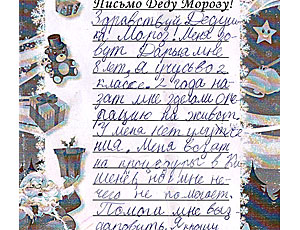 Письмо Деду Морозу!
Здравствуй Дедуш-
ка! Мороз! Меня зо-
вут Дарья мне
8 лет, я учусь во 2
классе. 2 года на-
зат мне зделали опе-
рацию на живот
У меня нет улутше-
ния. Меня возят
на процедуры в
но мне не-
чего не помогает.
Помоги мне выз-
даробить.